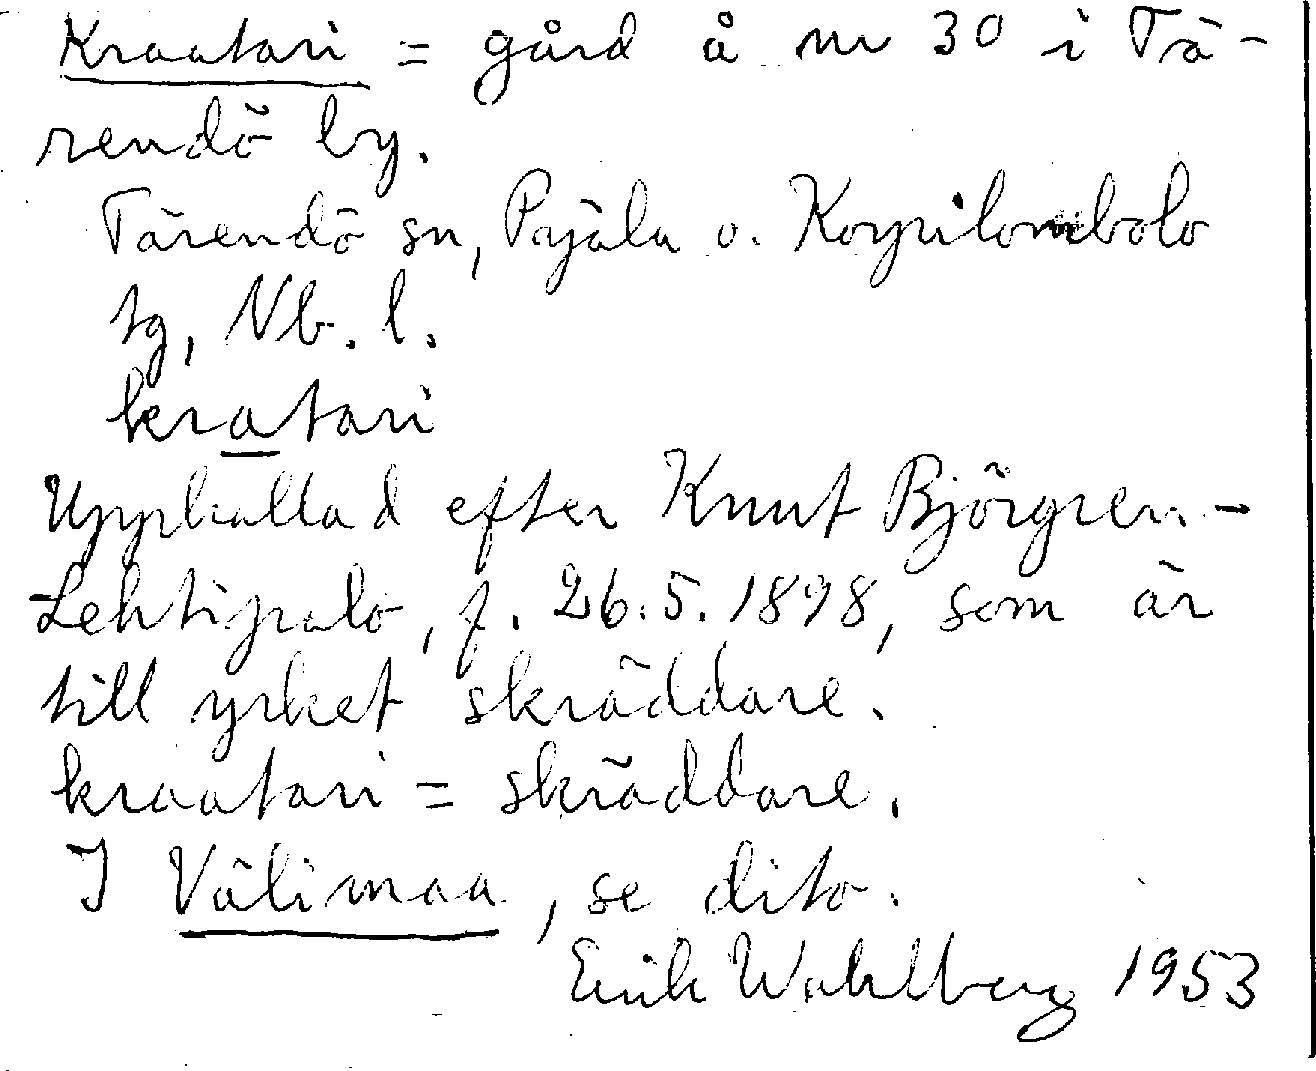 Kraatari = gård å nr 30 i Tä-
rendö by.
Tärendö sn, Pajala o. Korpilombolo
tg, Nb. l.
kratari
Uppkallad efter Knut Björgren-
-Lehtipalo, f. 26.5.1898, som är
till yrket skräddare.
kraatari = skräddare.
I Välimaa, se dito.
Erik Wahlberg 1953